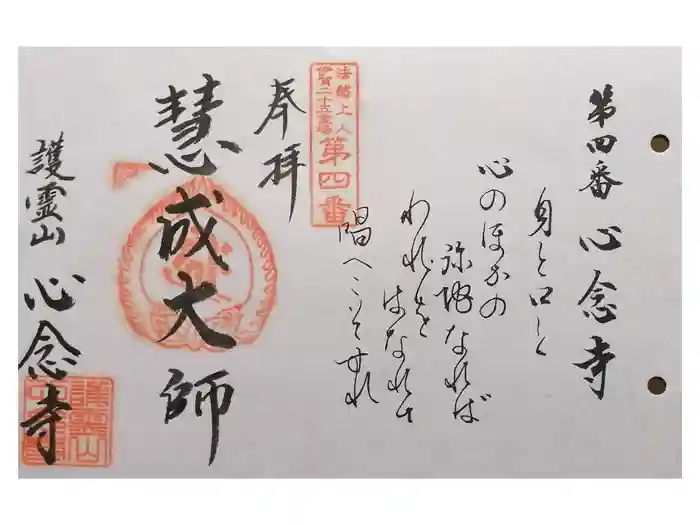 第四番 心念寺
身と口と
心のほかの
弥陀なれば
われをはなれて
唱へこそすれ
法然上人
伊賀二十五霊場
第四番
奉拝
慧成大師
護霊山 心念寺